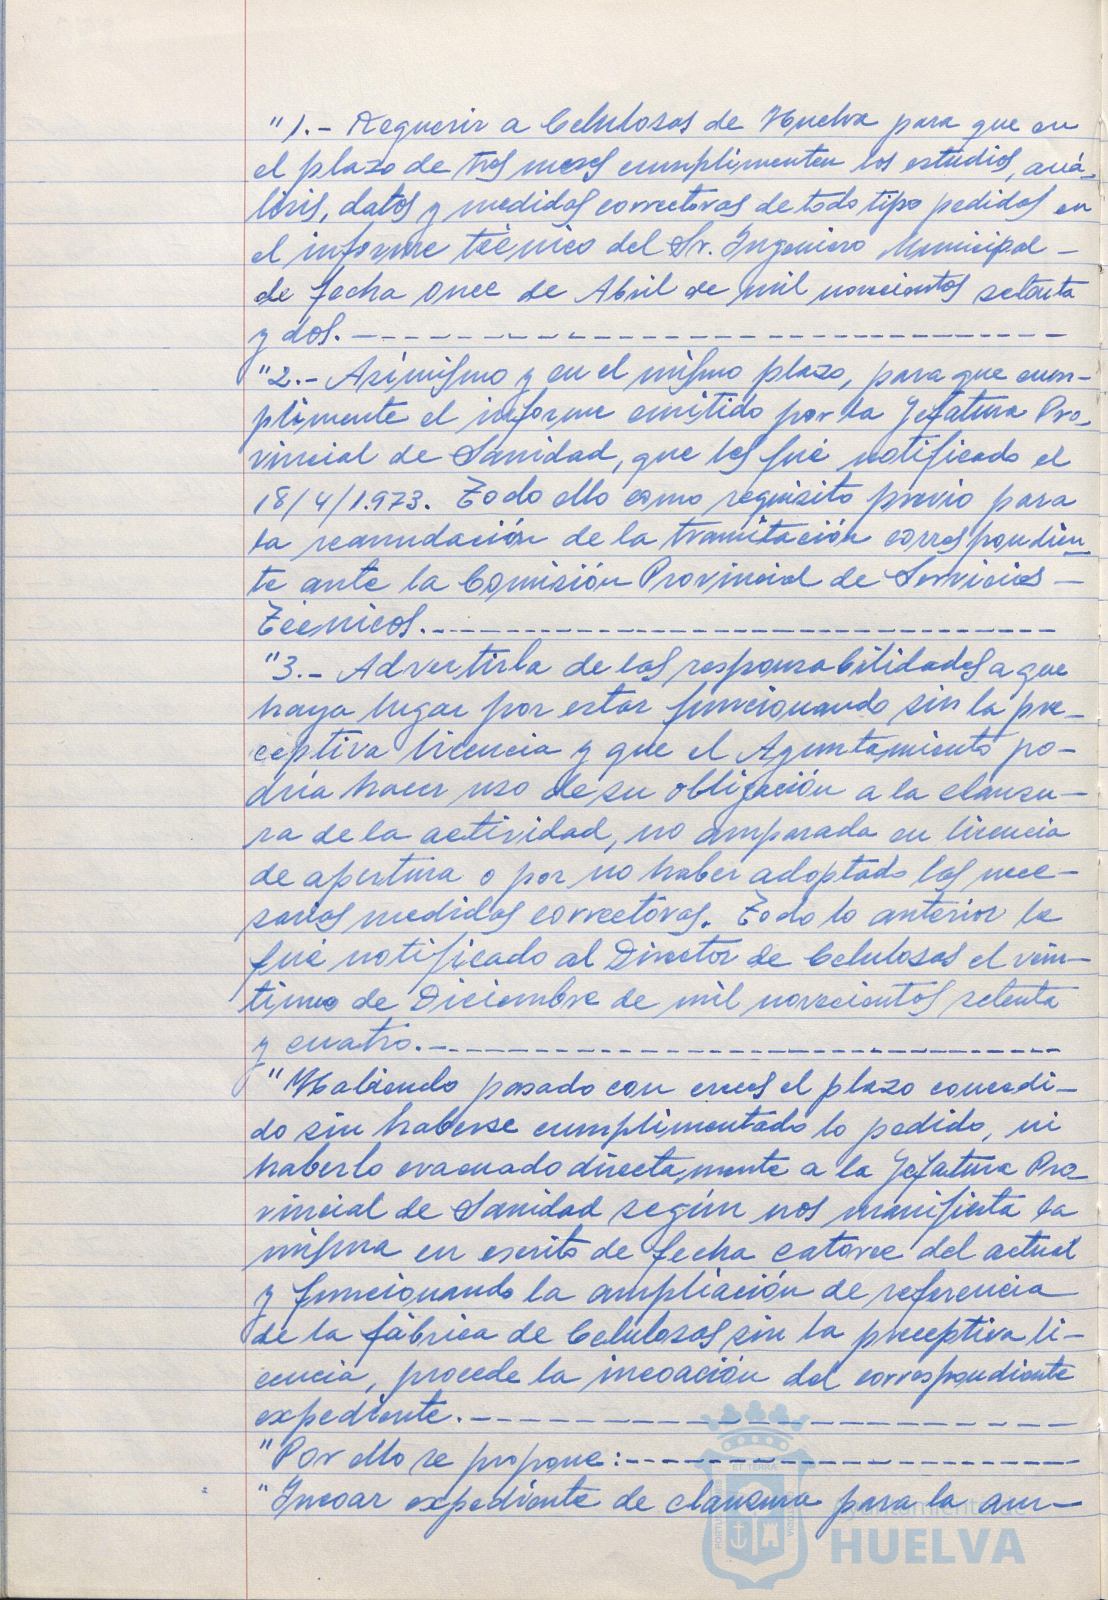 "1.- Requerir a Celulosas de Huelva para que en
el plazo de tres meses cumplimenten los estudios, aná-
lisis, datos y medidas correctoras de todo tipo pedidos en
el informe técnico del Sr. Ingeniero Municipal -
de fecha once de Abril de mil novecientos setenta
y dos. - - - - - - - - - - - - - - - - - - - - - - - -
"2.- Asimismo y en el mismo plazo, para que cum-
plimente el informe emitido por la Jefatura Pro-
vincial de Sanidad, que les fué notificado el
18/4/1.973. Todo ello como requisito previo para
la reanudación de la tramitación correspondien-
te ante la Comisión Provincial de Servicios -
Técnicos. - - - - - - - - - - - - - - - - - - - - - -
"3.- Advertirla de las responsabilidades a que
haya lugar por estar funcionando sin la pre-
ceptiva licencia y que el Ayuntamiento po-
dría hacer uso de su obligación a la clausu-
ra de la actividad, no amparada en licencia
de apertura o por no haber adoptado las nece-
sarias medidas correctoras. Todo lo anterior le
fué notificado al Director de Celulosas el vein-
tiuno de Diciembre de mil novecientos setenta
y cuatro. - - - - - - - - - - - - - - - - - - - - - -
"Habiendo pasado con creces el plazo concedi-
do sin haberse cumplimentado lo pedido, ni
haberlo evacuado directamente a la Jefatura Pro
vincial de Sanidad según nos manifiesta la
misma en escrito de fecha catorce del actual
y funcionando la ampliación de referencia
de la fábrica de Celulosas sin la preceptiva li-
cencia, procede la incoación del correspondiente
expediente. - - - - - - - - - - - - - - - - - - - - -
"Por ello se propone: - - - - - - - - - - - - - - - -
"Incoar expediente de clausura para la am-
Ayuntamiento de
HUELVA